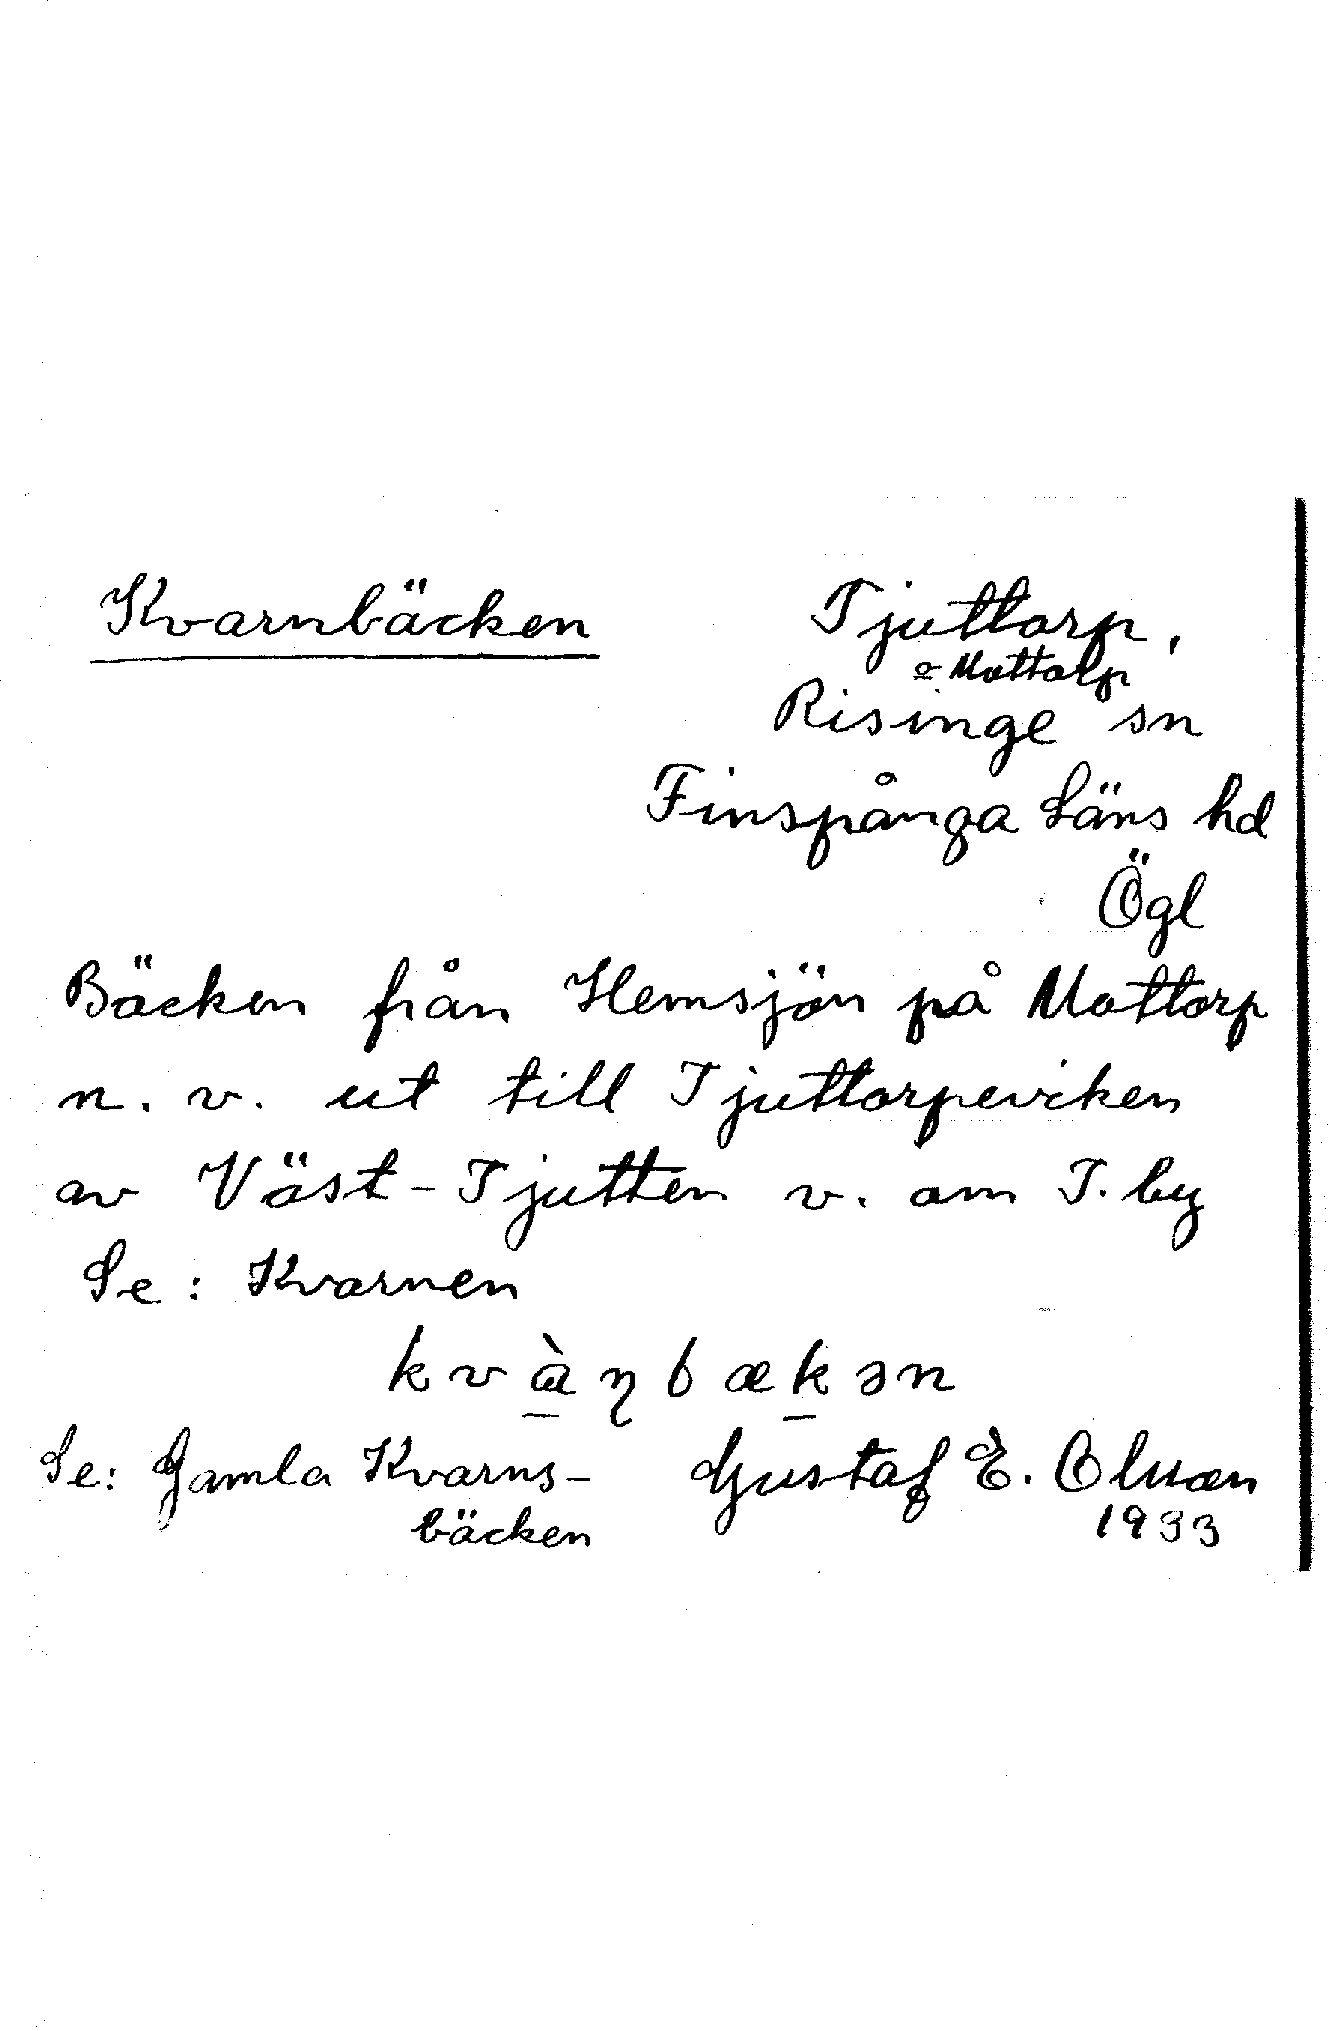 Kvarnbäcken
Tjuttorp,
o Mottorp
Risinge sn
Finspånga Läns hd
Ögl
Bäcken från Hemsjön på Mottorp
n. v. ut till Tjuttorpeviken
av Väst-Tjutten v. om T. by
Se: Kvarnen
kvὰɳbækən
Se: Gamla Kvarns-
bäcken
Gustaf E.
1933